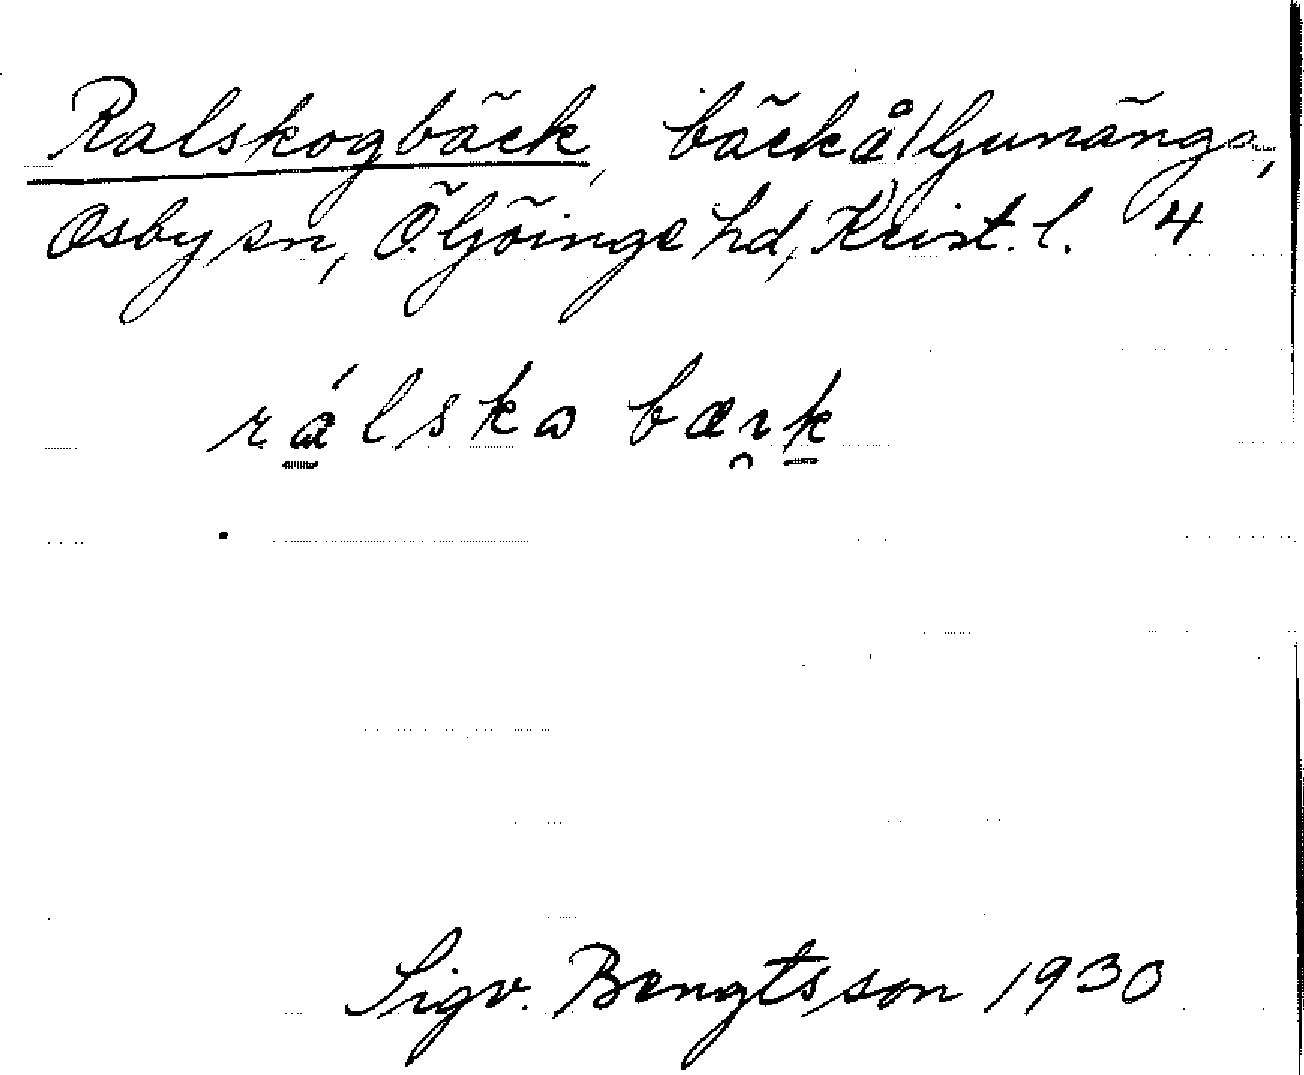 Ralskogbäck, bäck å Ljunänga,
Osby sn, Ö. Göinge hd, Krist. l. 4
rálska bæi̯k
Sigv. Bengtsson 1930